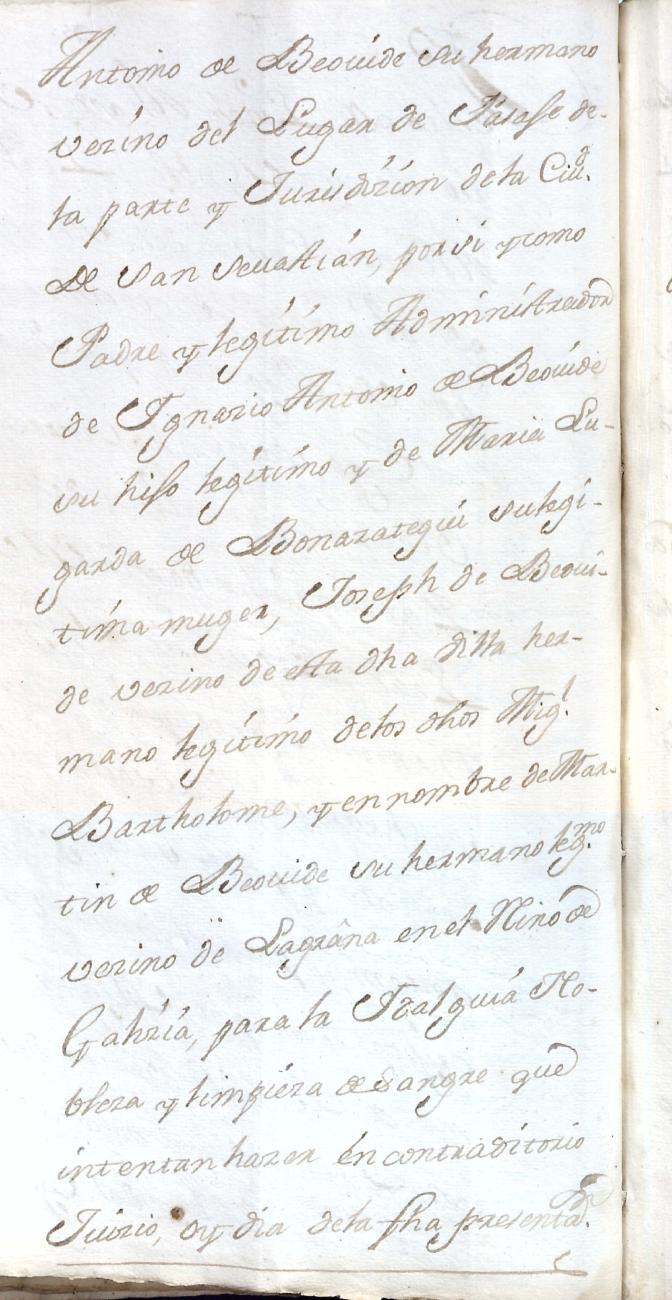 Antonio de Beovide su hermano
vezino del Lugar de Pasaje de
la parte y Jurisdizion de la Ciud.
de San Sevastián, por si y como
Padre y legítimo Administrador
de Ygnazio Antonio de Beovide
su hijo legítimo y de Maria Lu-
garda de Bonazategui su legi-
tima muger, Joseph de Beovi-
de vezino de esta dha villa her-
mano legítimo de los dhos Migl.
Bartholome, y en nombre de Mar-
tin de Beovide su hermano legmo.
vezino de Lagrâna en el Rino de
Galizia, para la Ydalguiá No-
bleza y limpieza de sangre que
intentan hazer en contraditorio
Juizio, oy dia de la fha presenta